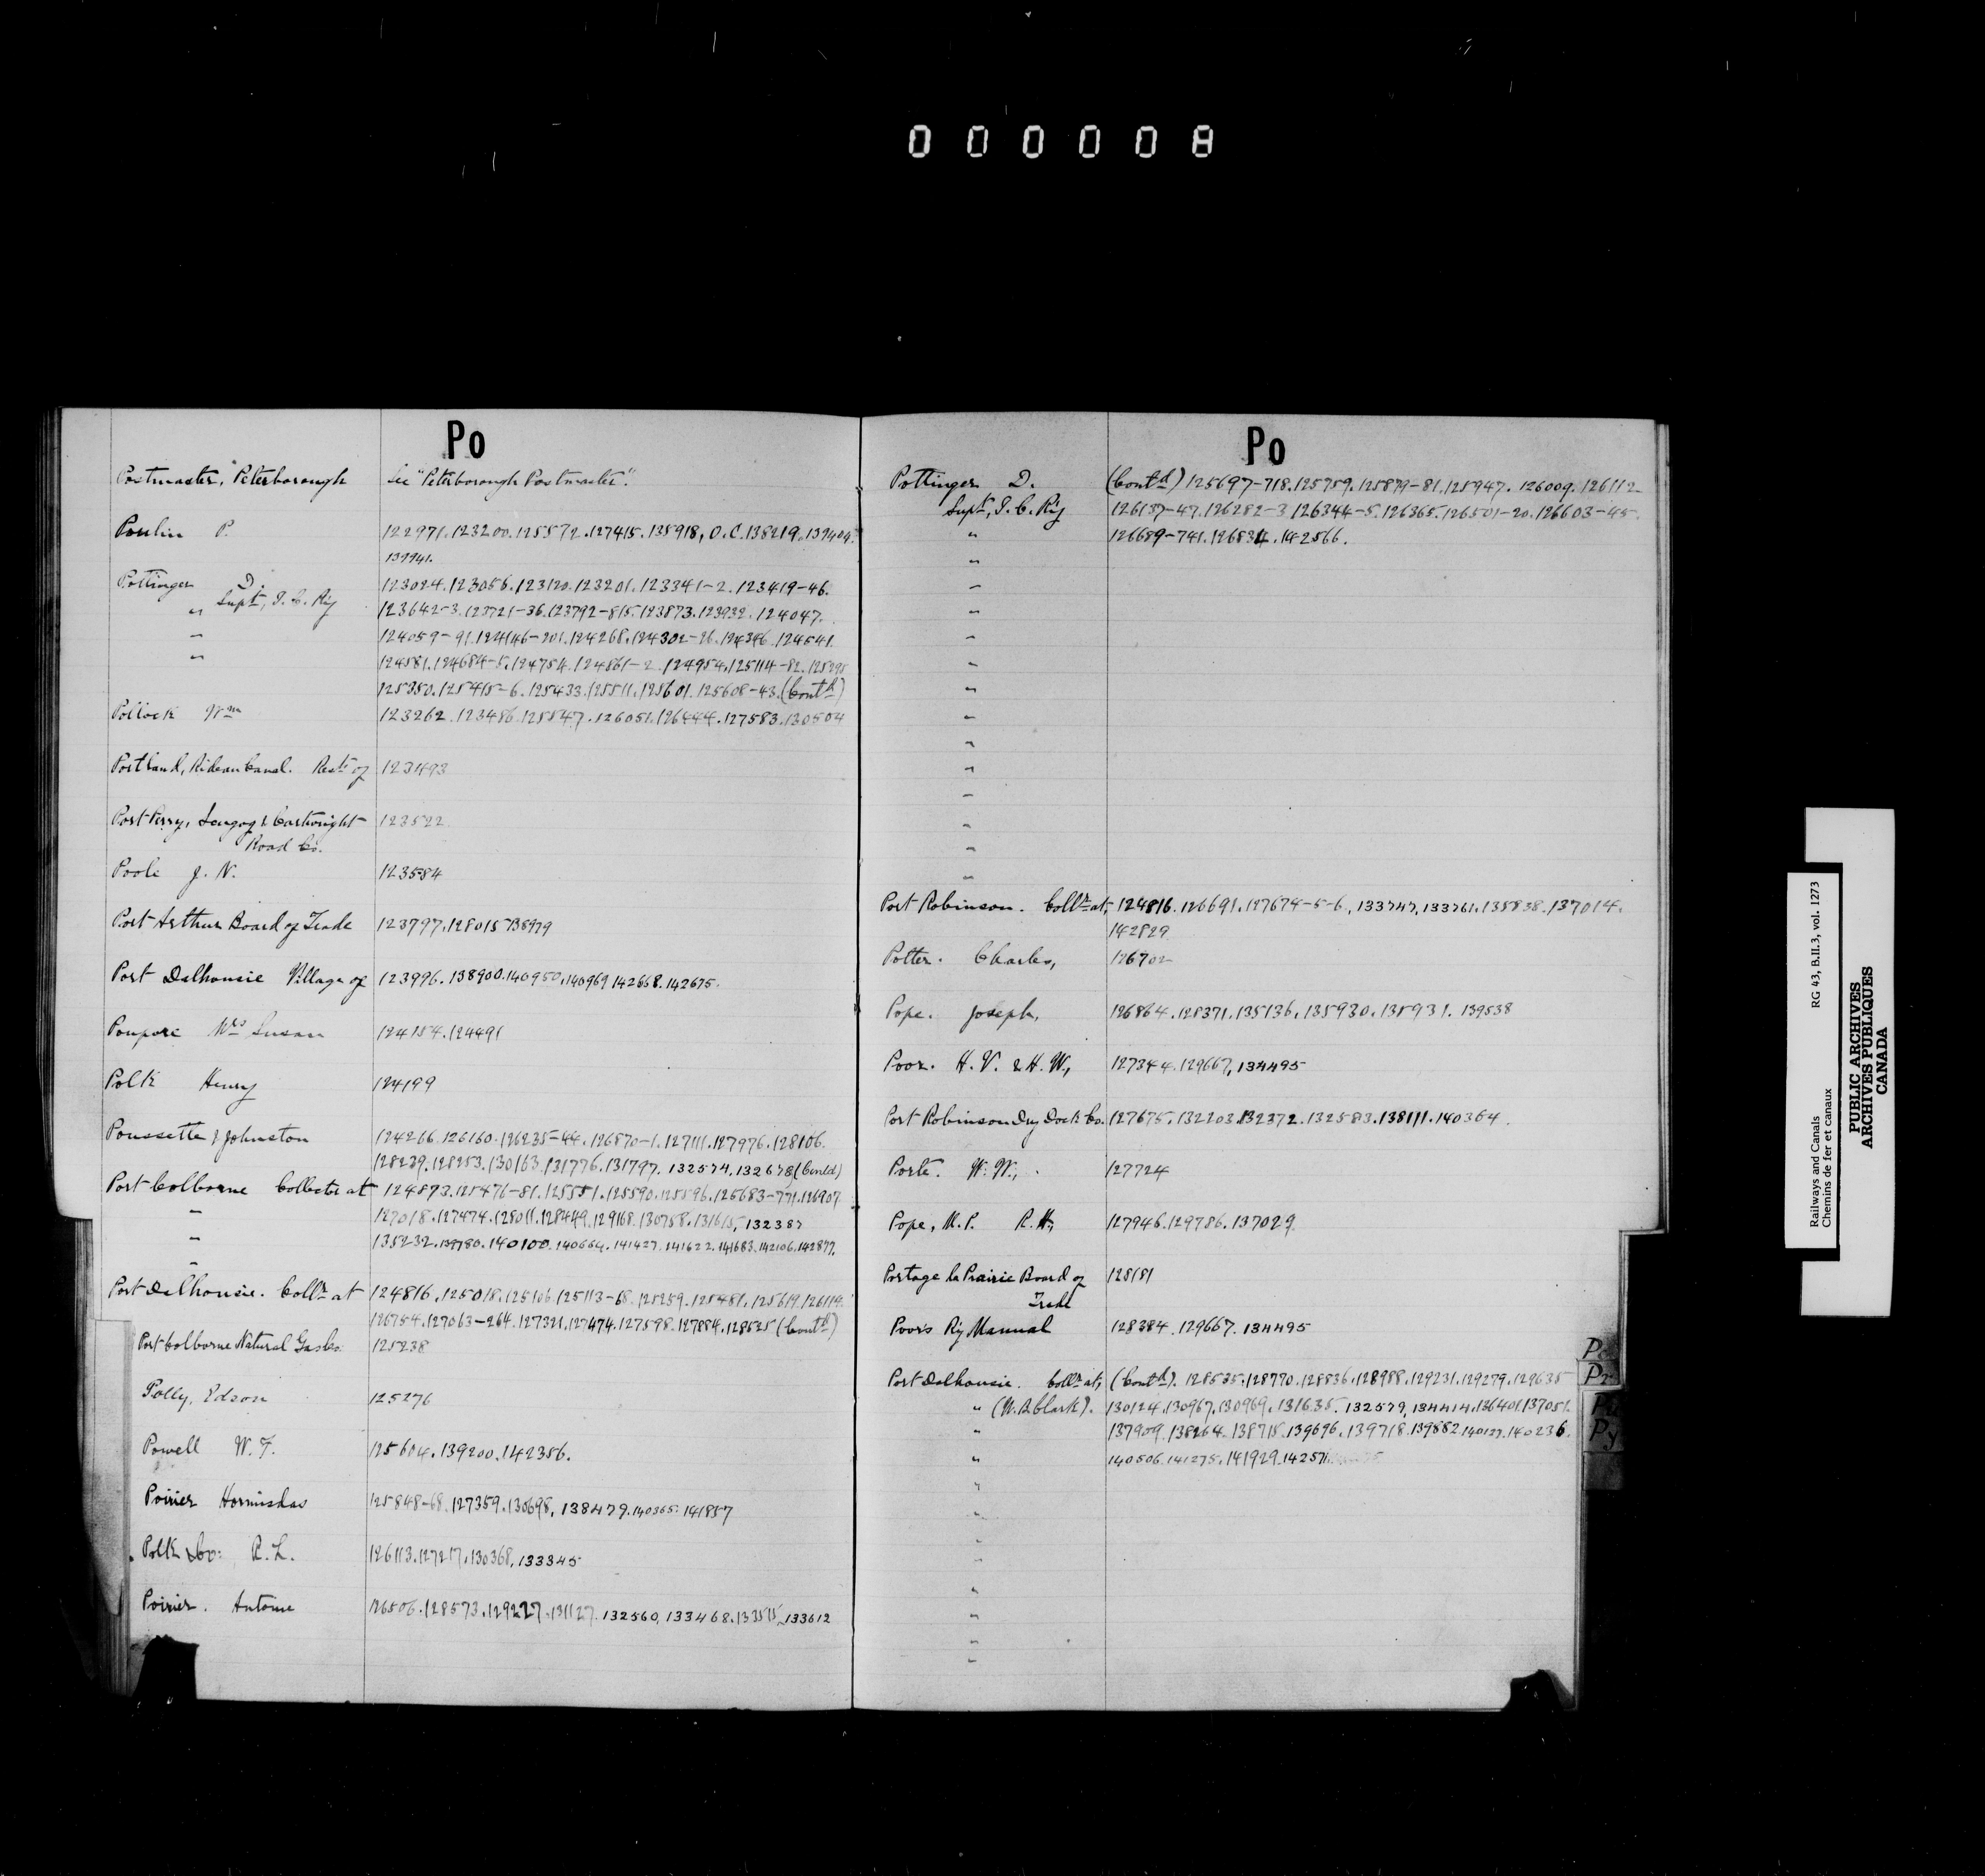 000008
Po
Postmaster, Peterborough See "Peterborough Postmaster".
Poulin P. 122971.123200.125572.127415.135918, O.C.138219.139404.
139941.
Pottinger D. 123024.123056.123120.123201.123341-2.123419-46.
" Supt, I.C. Ry 123642-3.123721-36.123792-815.123873.123932.124047.
" 124059-91.124146-201.124268.124302-26.124346.124541.
" 124581.124684-5.124754.124861-2.124954.125114-82.125295
125350.125415-6.125433.125511.125601.125608-43.(Contd)
Pollock Wm 123262.123486.125547.126051.126444.127583.130504
Portland, Rideau Canal. Rests of 123493
Port Perry, Scugog & Cartwright 123522
Road Co.
Poole J. N. 123584
Port Arthur Board of Trade 123797.128015.138979
Port Dalhousie Village of 123996.138900.140950.140969.142668.142675.
Poupore Mrs Susan 124154.124491
Polk Henry 124199
Poussette & Johnston 124266.126160.126235-44.126870-1.127111.127976.128106.
128239.128253.130163.131776.131797.132574,132678(Contd)
Port Colborne Collector at 124873.125476-81.125551.125590.125596.125683-771.126907
" 127018.127474.128011.128449.129168.130758.131615,132387
" 135232.139780.140100.140664.141427.141622.141683.142106.142877.
"
Port Dalhousie. Collr at 124816.125018.125106.125113-68.125259.125481.125619.126119.
126754.127063-264.127321.127474.127598.127884.128525 (Contd)
Port Colborne Natural Gas Co. 125238
Polly, Edson 125276
Powell W. F. 125604.139200.142356.
Poirier Hormisdas 125848-68.127359.130698,138479.140365.141857
Polk & Co: R. L. 126113.127217.130368,133345
Poirier. Antoine 126506.128573.129227.131127.132560,133468.133515,133612
Po
Pottinger D. (Contd) 125697-718.125759.125879-81.125947.126009.126112
Supt, I.C. Ry 126137-47.126282-3.126344-5.126365.126501-20.126603-45.
" 126689-741.126834.142566.
"
"
"
"
"
"
"
"
"
"
"
"
"
Port Robinson. Collr at, 124816.126691.127674-5-6,133747,133761.135838.137014.
142829
Potter. Charles, 126702
Pope. Joseph, 126864.128371.135136.135930.135931.139538
Poor. H. V. & H. W., 127344.129667,134495
Port Robinson Dry Dock Co. 127675.132203.132372.132583.138111.140364.
Porte. W. W., 127724
Pope, M.P. R.H., 127946.129786.137029
Portage la Prairie Board of 128181
Trade
Poor's Ry Manual 128384.129667.134495
Port Dalhousie. Collr at, (Contd). 128535.128770.128836.128988.129231.129279.129635
" (W.B. Clark). 130124.130967.130969.131635.132579,134414.136401.137051.
" 137909.138264.138715.139696.139718.139882.140127.140236.
" 140506.141275.141929.142571
"
"
"
"
"
"
"
"
Pr
Py
Railways and Canals RG 43, B.II.3, vol. 1273
Chemins de fer et canaux
PUBLIC ARCHIVES
ARCHIVES PUBLIQUES
CANADA